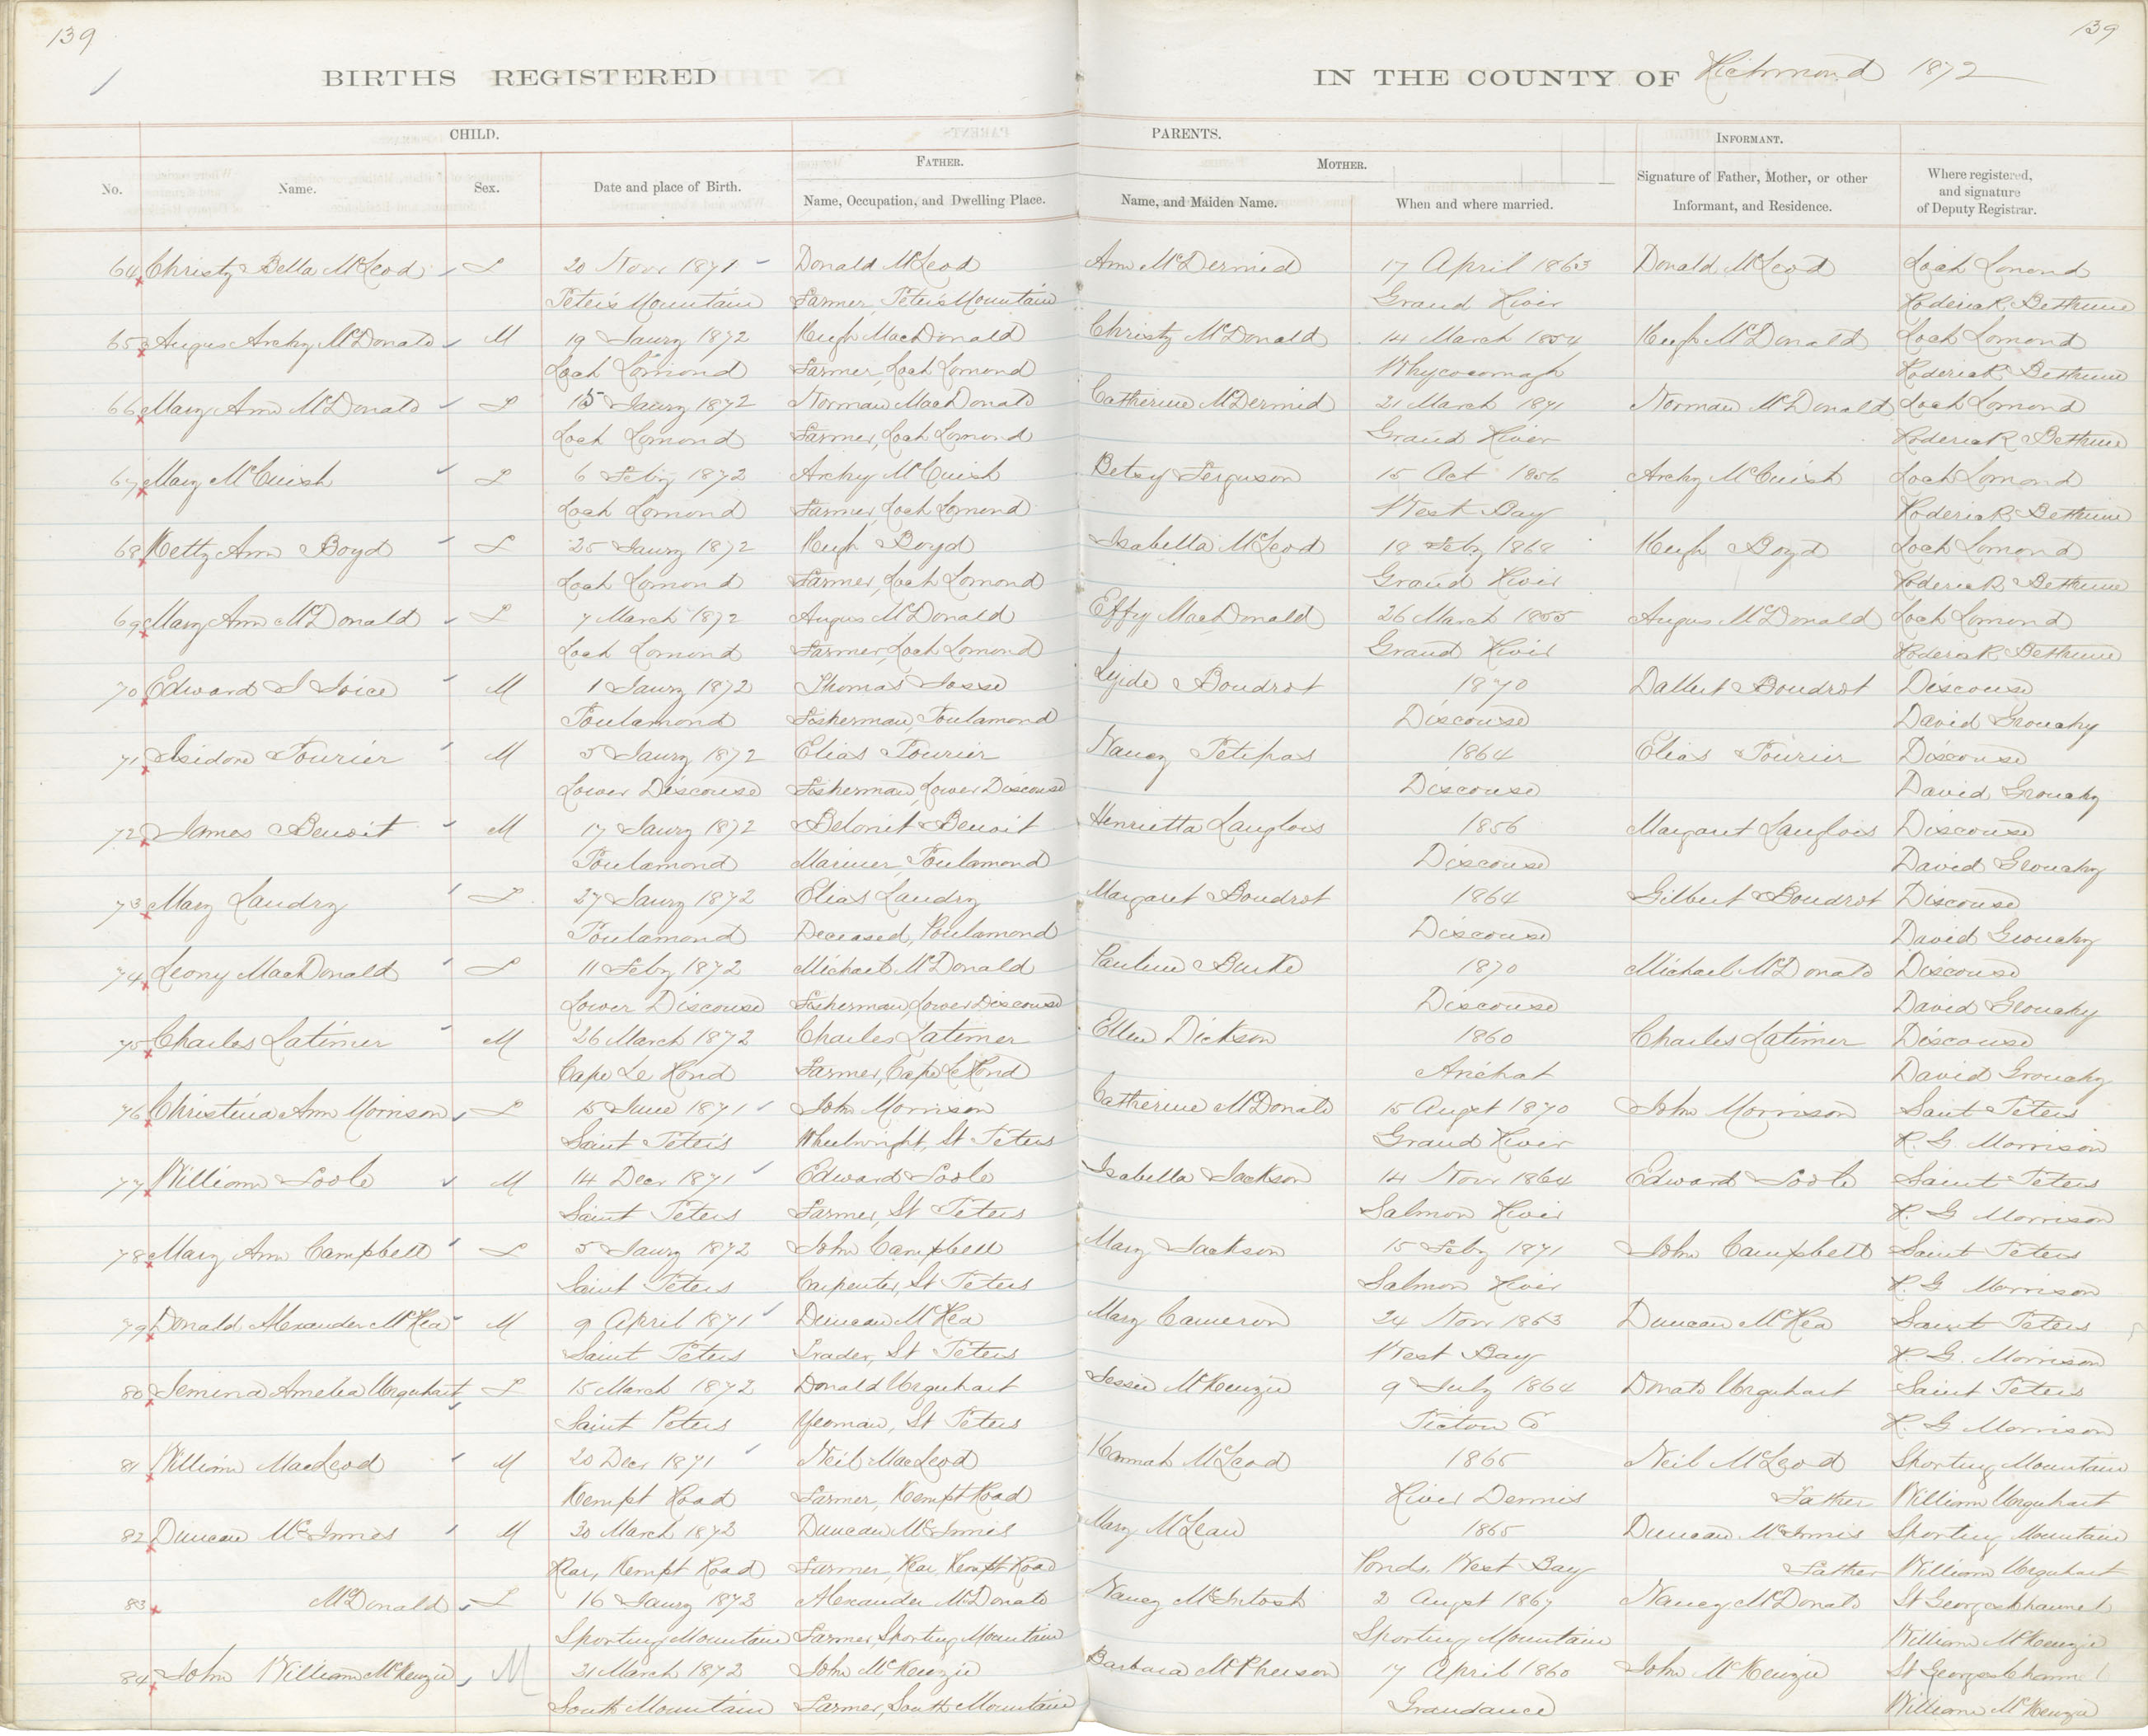 139
139
BIRTHS REGISTERED IN THE COUNTY OF Richmond 1872
CHILD. PARENTS. INFORMANT.
FATHER. MOTHER.
No. Name. Sex. Date and place of Birth. Name, Occupation, and Dwelling Place. Name, and Maiden Name. When and where married. Signature of Father, Mother, or other Informant, and Residence. Where registered, and signature of Deputy Registrar.
64 Christy Bella McLeod F 20 Novr 1871 Donald McLeod Ann McDermid 17 April 1863 Donald McLeod Loch Lomond
Peter's Mountain Farmer, Peter's Mountain Grand River Roderick Bethune
65 Angus Archy McDonald M 19 Jaury 1872 Hugh MacDonald Christy McDonald 14 March 1854 Hugh McDonald Loch Lomond
Loch Lomond Farmer, Loch Lomond Whycocomagh Roderick Bethune
66 Mary Ann McDonald F 15 Jaury 1872 Norman MacDonald Catherine McDermid 21 March 1871 Norman McDonald Loch Lomond
Loch Lomond Farmer, Loch Lomond Grand River Roderick Bethune
67 Mary McCuish F 6 Feby 1872 Archy McCuish Betsy Ferguson 15 Oct 1856 Archy McCuish Loch Lomond
Loch Lomond Farmer, Loch Lomond West Bay Roderick Bethune
68 Ketty Ann Boyd F 25 Jaury 1872 Hugh Boyd Isabella McLeod 18 Feby 1868 Hugh Boyd Loch Lomond
Loch Lomond Farmer, Loch Lomond Grand River Roderick Bethune
69 Mary Ann McDonald F 7 March 1872 Angus McDonald Effy MacDonald 26 March 1855 Angus McDonald Loch Lomond
Loch Lomond Farmer, Loch Lomond Grand River Roderick Bethune
70 Edward J Joice M 1 Jaury 1872 Thomas Josse Boudrot 1870 Boudrot Discouse
Poulamond Fisherman, Poulamond Discouse David Grouchy
71 Isidore Poirier M 5 Jaury 1872 Elias Poirier Nancy Petipas 1864 Elias Poirier Discouse
Lower Discouse Fisherman, Lower Discouse Discouse David Grouchy
72 James Benoit M 17 Jaury 1872 Belonit Benoit Henrietta Langlois 1856 Margaret Langlois Discouse
Poulamond Mariner, Poulamond Discouse David Grouchy
73 Mary Landry F 27 Jaury 1872 Elias Landry Margaret Boudrot 1864 Gilbert Boudrot Discouse
Poulamond Deceased, Poulamond Discouse David Grouchy
74 Leony MacDonald F 11 Feby 1872 Michael McDonald Pauline Burke 1870 Michael McDonald Discouse
Lower Discouse Fisherman, Lower Discouse Discouse David Grouchy
75 Charles Latimer M 26 March 1872 Charles Latimer Ellen Dickson 1860 Charles Latimer Discouse
Cape Le Rond Farmer, Cape Le Rond Arichat David Grouchy
76 Christina Ann Morrison F 15 June 1871 John Morrison Catherine McDonald 15 Augst 1870 John Morrison Saint Peters
Saint Peter's Wheelwright, St Peters Grand River R. G. Morrison
77 William Poole M 14 Decr 1871 Edward Poole Isabella Jackson 14 Novr 1864 Edward Poole Saint Peters
Saint Peters Farmer, St Peters Salmon River R. G Morrison
78 Mary Ann Campbell F 5 Jaury 1872 John Campbell Mary Jackson 15 Feby 1871 John Campbell Saint Peters
Saint Peters Carpenter, St Peters Salmon River R. G Morrison
79 Donald Alexander McRea M 9 April 1871 Duncan McRea Mary Cameron 24 Novr 1863 Duncan McRea Saint Peters
Saint Peters Trader, St Peters West Bay R. G. Morrison
80 Jemina Amelia Urquhart F 15 March 1872 Donald Urquhart Jessie McKenzie 9 July 1864 Donald Urquhart Saint Peters
Saint Peters Yeoman, St Peters Pictou Co R. G Morrison
81 William MacLeod M 20 Decr 1871 Neil MacLeod Hannah McLeod 1865 Neil McLeod Sporting Mountain
Kempt Road Farmer, Kempt Road River Dennis Father William Urquhart
82 Duncan McInnes M 30 March 1872 Duncan McInnis Mary McLean 1865 Duncan McInnis Sporting Mountain
Rear, Kempt Road Farmer, Rear, Kempt Road Ponds, West Bay Father William Urquhart
83 McDonald F 16 Jaury 1872 Alexander McDonald Nancy McIntosh 2 Augst 1867 Nancy McDonald St Georges Channel
Sporting Mountain Farmer, Sporting Mountain Sporting Mountain William McKenzie
84 John William McKenzie M 31 March 1872 John McKenzie Barbara McPherson 17 April 1860 John McKenzie St Georges Channel
South Mountain Farmer, South Mountain Grandance William McKenzie